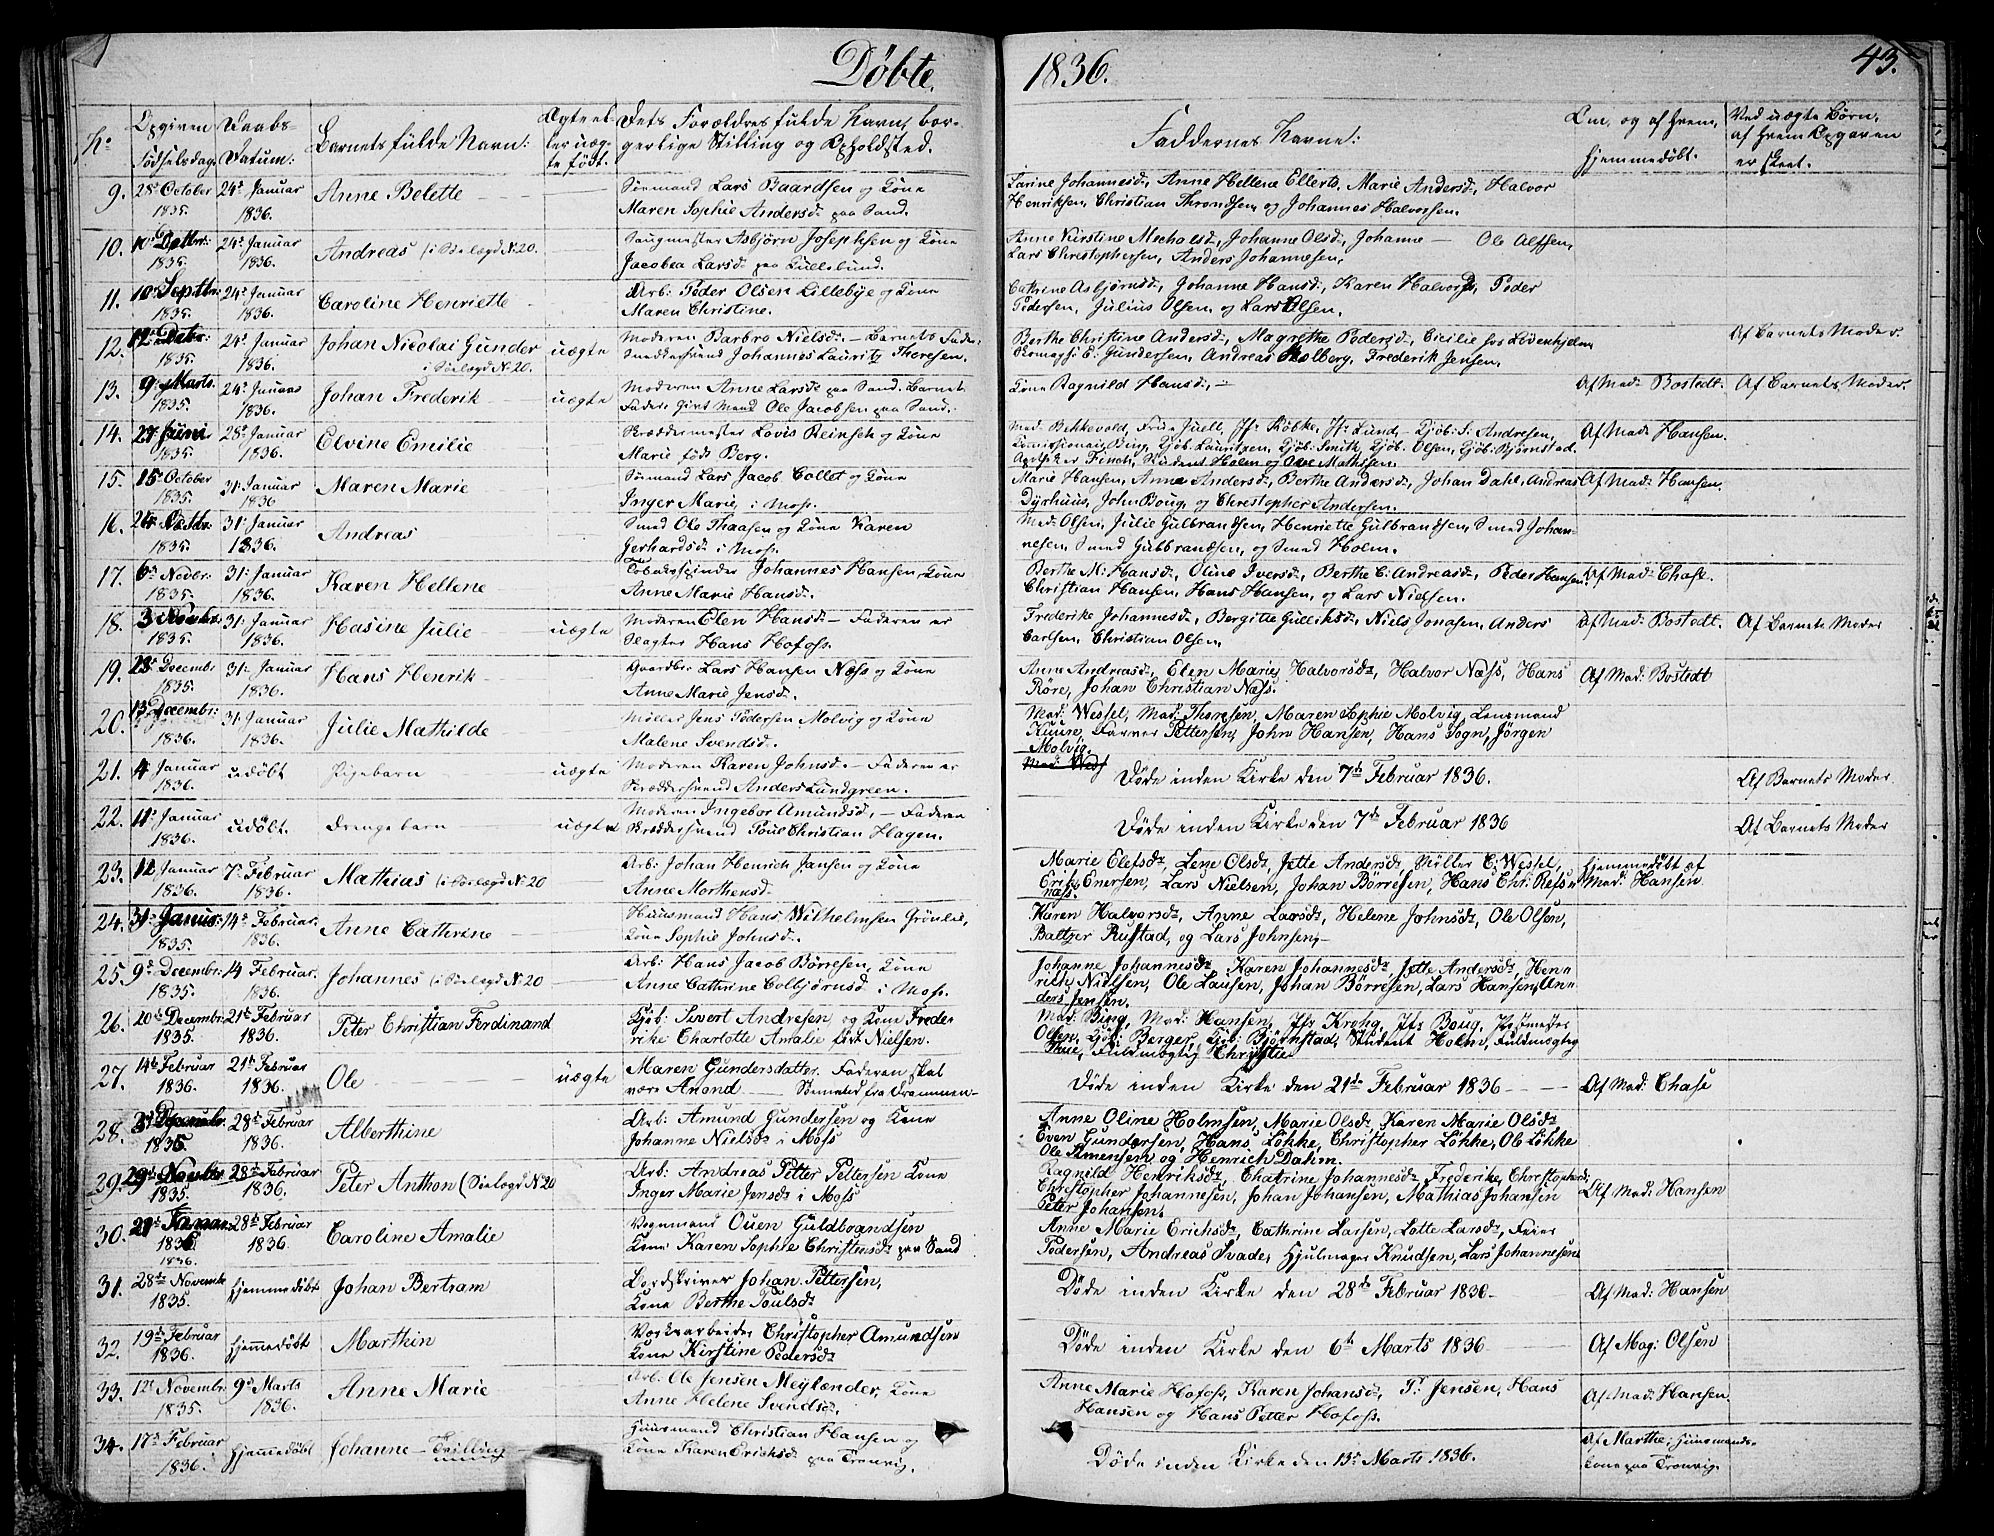 Døbte
1836.
43.
No
Opgiven
Fødselsdag
Daabs-
Datum:
Barnets fulde Navn:
Ægte el-
ler uæg-
te født.
Dets Forældres fulde Navn, bor-
gerlige Stilling og Opholdsted.
Faddernes Navne:
Om, og af hvem,
hjemmedøbt.
Ved uægte Børn,
af hvem Opgaven
er skeet.
9. 28de October 24de Januar Anne Bolette Sømand Lars Baardsen og Kone Karine Johannesd., Anne Hellene Ellerts, Marie Andersd., Halvor
1835. 1836. Maren Sophie Andersd. paa Sand. Henriksen, Christian Throndsen, og Johannes Halvorsen.
10. 24de Januar Andreas (i Søelægd N. 20. Saugmester Asbjørn Josephsen og Kone Anne Kirstine Mecholsd., Johanne Olsd., Johanne — Ole Alfsen,
1835. 1836. Jacobea Larsd. paa Lars Christophersen, Anders Johannesen,
11. 10de Septbr: 24de Januar Caroline Henriette Arb: Peder Olsen Lillebye og Kone Cathrine Asbjørnsd., Johanne Hansd., Karen Halvorsd., Peder
1835. 1836. Maren Christine. Pedersen, Julius Olsen, og Lars Olsen.
12. 24de Januar Johan Nicolai Gunder uægte Moderen Barbro Nielsd. — Barnets Fader: Berthe Christine Andersd., Magrethe Pedersd., Cecilie hos Løvenhjelm, Af Barnets Moder.
1835. 1836. i Søelægd N. 20. Snedkersvend Johannes Lauritz Thoresen. Gundersen, Andreas Holberg, Frederik Jensen.
13. 9de Marts 24de Januar Johan Frederik uægte Moderen Anne Larsd. paa Sand. Barnets Kone Ragnild Hansd., Af Mad: Bostedt. Af Barnets Moder.
1835. 1836. Fader: Givt Mand Ole Jacobsen paa Sand.
14. 27de Juni 28de Januar Elvine Emilie Skræddermester Lovis Reinsch og Kone Mad. Bekkevold, Frue Juell, Jfr. Købke, Jfr. Lund, Kjøb: S. Andresen, Af Mad: Hansen.
1835. 1836. Marie født Berg. Bing, Kjøb: Lauritzen, Kjøb: Smith, Kjøb: Olsen, Kjøb: Bjørnstad,
Apotheker Finch, Student Holm og Ole Mathisen.
15. 15de October 31: Januar Maren Marie Sømand Lars Jacob Collet og Kone Marie Hansen, Anne Andersd., Berthe Andersd., Johan Dahl, Andreas Af Mad: Hansen.
1835. 1836 Inger Marie i Moss. Dyrhuus, John Boug, og Christopher Andersen.
16. 31: Januar Andreas Smed Ole Thaasen og Kone Karen Mad: Olsen, Julie Gulbrandsen, Henriette Gulbrandsen, Smed Johan-
1835. 1836. Gerhardsd. i Moss. nesen, Smed Gulbrandsen, og Smed Holm.
17. 6te Novbr: 31: Januar Karen Hellene Tobakspinder Johannes Hansen, Kone Berthe M: Hansd., Oline Iversd., Berthe C: Andreasd., Peder Hansen, Af Mad: Chase.
1835. 1836. Anne Marie Hansd. Christian Hansen, Hans Hansen, og Lars Nielsen.
18. 31: Januar Hasine Julie uægte Moderen Elen Hansd. — Faderen er Frederike Johannesd., Bergitte Gulliksd., Niels Jonasen, Anders Af Mad: Bostedt. Af Barnets Moder
1835. 1836. Slagter Hans Hofoss. Carlsen, Christian Olsen,
19. Decembr 31: Januar Hans Henrik Gaardbr Lars Hansen Næss og Kone Anne Andreasd., Elen Marie Halvorsd., Halvor Næss, Hans Af Mad: Bostedt
1835. 1836. Anne Marie Jensd. Røre, Johan Christian Næss.
20. 13 Decembr: 31: Januar Julie Mathilde Møller Jens Pedersen Molvig og Kone Mad: Wessel, Mad: Thoresen, Maren Sophie Molvig, Lensmand
1836. 1836. Malene Svendsd. Kuur, Farver Pettersen, John Hansen, Hans Sogn, Jørgen
Molvig.
21. 4 Januar udøbt Pigebarn uægte Moderen Karen Johnsd. — Faderen er Døde inden Kirke den 7de Februar 1836. Af Barnets Moder
1836. Skræddersvend Anders Lundgreen.
22. 11 Januar udøbt. Drengebarn uægte Moderen Ingebor Amundsd. — Faderen Døde inden Kirke den 7de Februar 1836 Af Barnets Moder
1836. Skræddersvend Poul Christian Hagen.
23. 12 Januar 7de Februar Mathias (i Søelægd N. 20 Arb: Johan Henrich Jansen og Kone Marie Elefsd., Lene Olsd., Jette Andersd., Møller C: Wessel, hjemmedøbt af
1836. 1836. Anne Morthensd. Erik Enersen, Lars Nielsen, Johan Børresen, Hans Chr: Refs= Mad: Hansen
næss.
24. 31 Januar: 14de Februar: Anne Cathrine Huusmand Hans Wilhelmsen Grønlie, Karen Halvorsd., Anne Larsd., Helene Johnsd., Ole Olsen,
1835. 1836. Kone Sophie Johnsd. Baltzer Rustad, og Lars Johnsen,
25. 9de Decembr: 14 Februar. Johannes (i Søelægd N. 20 Arb: Hans Jacob Børresen, Kone Johanne Johannesd., Karen Johannesd., Jette Andersd., Hen=
1835. 1836. Anne Cathrine Colbjørnsd. i Moss. rich Nielsen, Ole Lausen, Johan Børresen, Lars Hansen, An=
ders Jensen.
26. 20de Decembr: 21de Februar Peter Christian Ferdinand Kjøb: Sivert Andresen, og Kone Frede= Mad: Bing, Mad: Hansen, Jfr Krohg, Jfr Boug, Postmester
1835. 1836. rike Charlotte Amalie født Nielsen. Olsen, Kjøb: Berger, Kjøb: Bjørnstad, Student Holm, Fuldmægtig
Thue, Fuldmægtig Christie
27. 14de Februar 21de Februar Ole uægte Maren Gundersdatter. Faderen skal Døde inden Kirke den 21de Februar 1836 Af Mad: Chase
1836. 1836. være Anond — Sømand fra Drammen
28. 28de Februar Alberthine Arb: Amund Gundersen og Kone Anne Oline Holmsen, Marie Olsd., Karen Marie Olsd.
1835 1836. Johanne Nielsd. i Moss Even Gundersen, Hans Løkke, Christopher Løkke, Ole Løkke
Ole Simensen og Henrich Dahim.
29. 29de 28de Februar Peter Anthon (Søelægd N. 20 Arb: Andreas Petter Pettersen Kone Ragnild Henriksd., Chatrine Johannesd., Frederike, Christopher
1835. 1836. Inger Marie Jensd. i Moss Christopher Johannesen, Johan Johansen, Mathias Johansen Af Mad: Hansen
Peter Johansen.
30. 28de Februar Caroline Amalie Vognmand Ouen Guldbrandsen Anne Marie Erichsd., Cathrine Larsen, Lotte Larsd., Feier
1836 1836. Kone Karen Sophie Christensd. paa Sand Pedersen, Andreas Svade, Hjulmager Knudsen, Lars Johannesen
1836.
31. 28de Novembr hjemmedøbt Johan Bertram Bordskriver Johan Pettersen, Døde inden Kirke den 28de Februar 1836 Af Mad: Hansen
1835. Kone Berthe Poulsd.
32. 19de Februar hjemmedøbt Marthin Værksarbeider Christopher Amundsen Døde inden Kirke den 6te Marts 1836 Af Mag: Olsen
1836. Kone Kirstine Pedersd.
33. 12te Novembr 9de Marts Anne Marie Arb: Ole Jensen Meylænder, Kone Anne Marie Hofoss, Karen Johansd., P. Jensen, Hans Af Mad: Hansen.
1835. 1836. Anne Helene Svendsd. Hansen og Hans Petter Hofoss.
34. 17de Februar hjemmedøbt Johanne — Tvilling Huusmand Christian Hansen og Døde inden Kirke den 13de Marts 1836. Af Marthe, Huusmands=
1836. Kone Karen Erichsd. paa Tronvig. kone paa Tronvig.